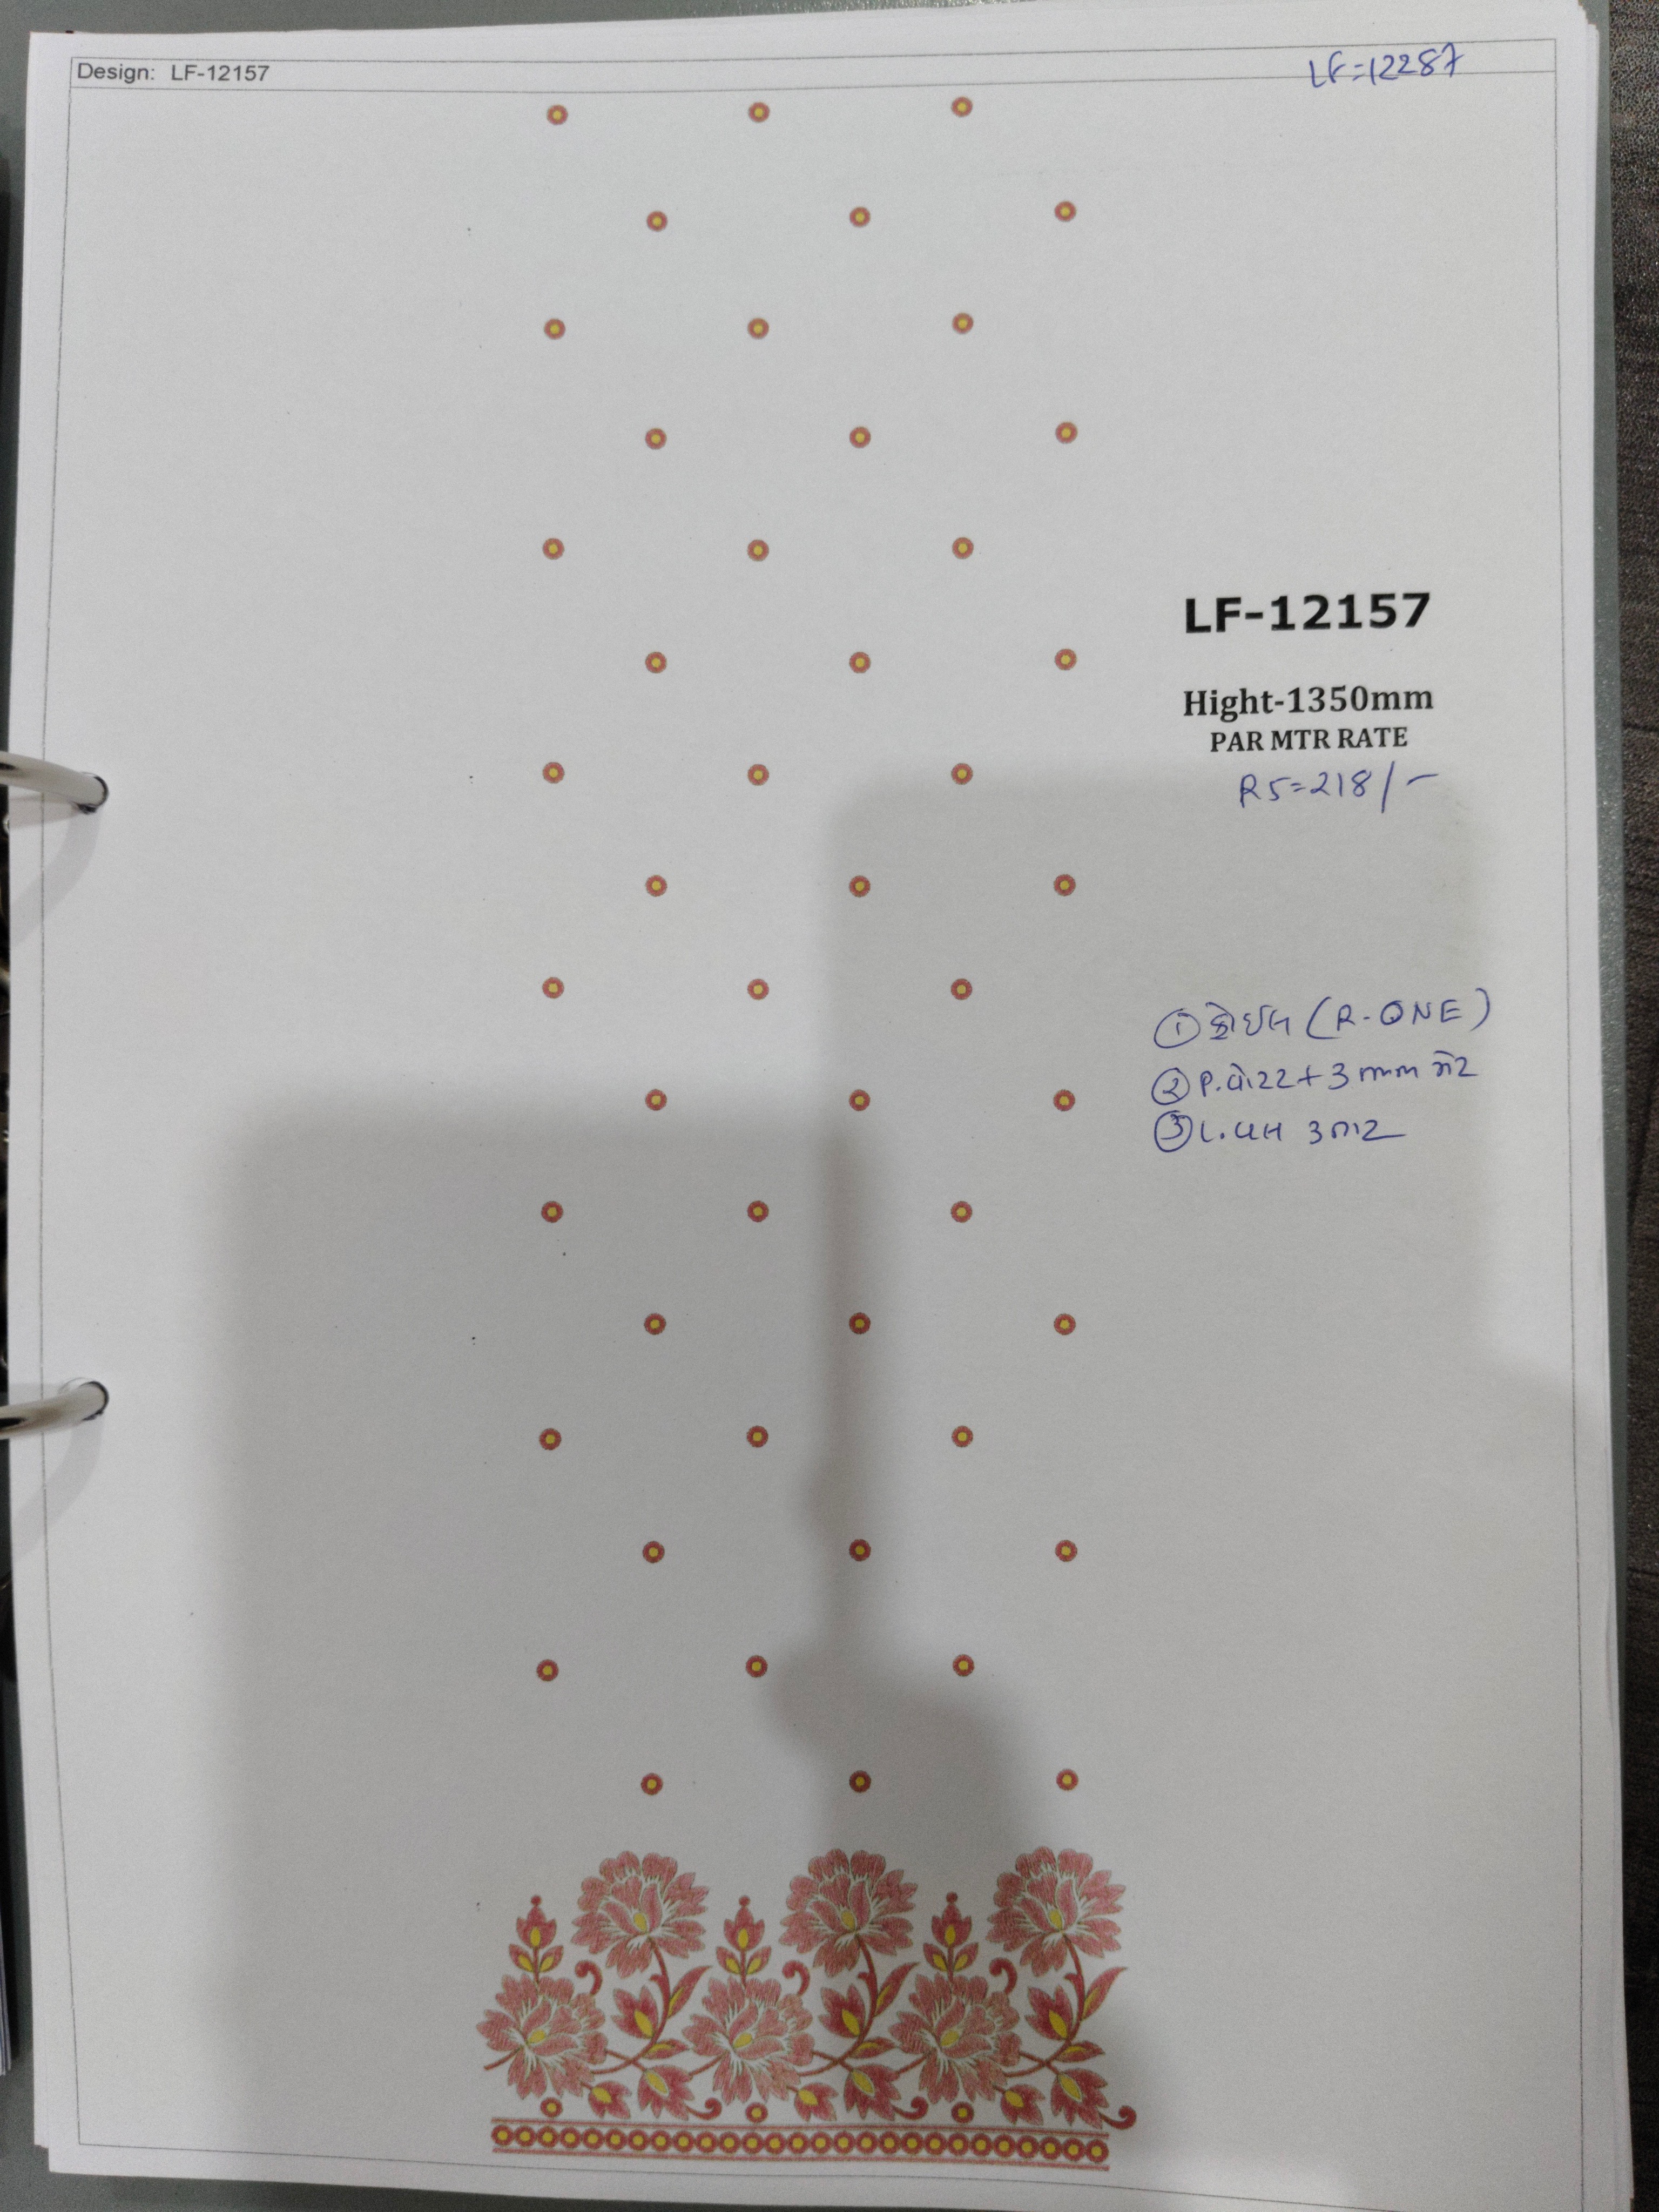 Design: LF-12157
LF=12287
LF-12157
Hight-1350mm
PAR MTR RATE
RS=218/-
① કોઈલ (R-ONE)
② P.વોટર + 3 mm
③